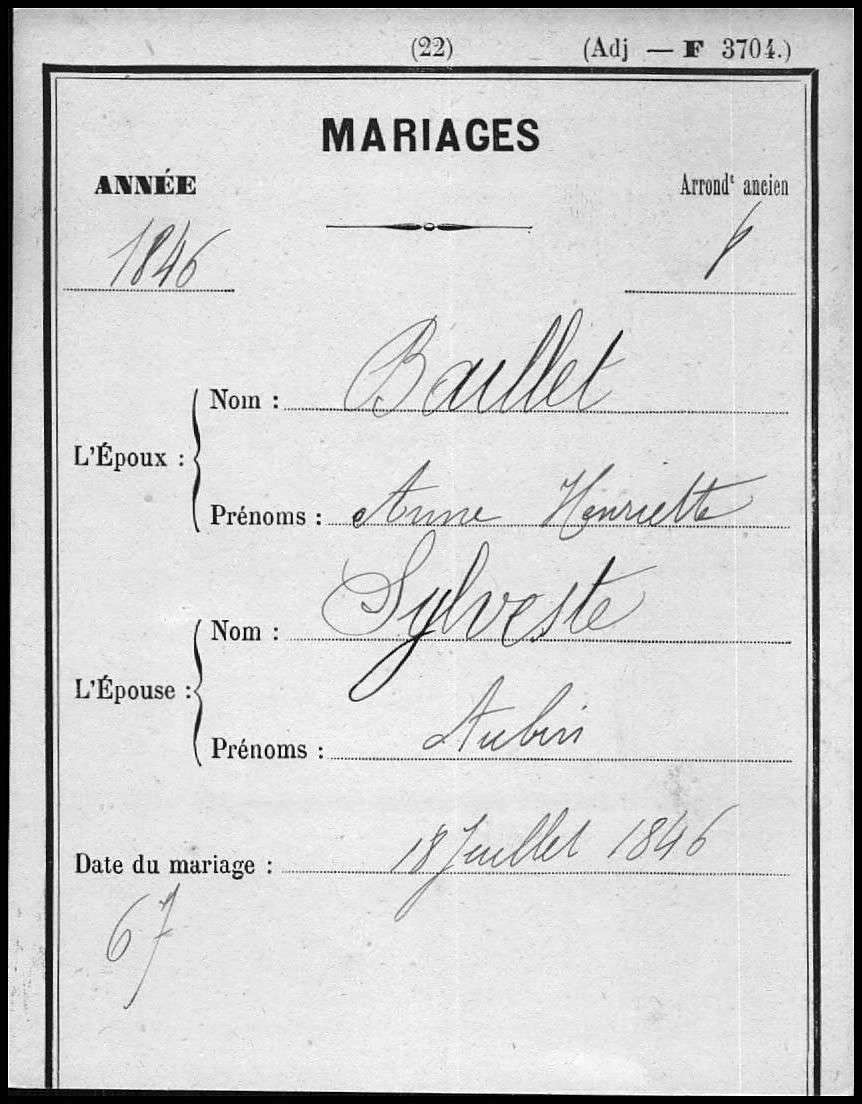 (22) (Adj — F 3704.)
MARIAGES
ANNÉE Arrondt ancien
1846
L'Époux :
Nom : Baillet
Prénoms : Anne Henriette
L'Épouse :
Nom : Sylveste
Prénoms : Aubin
Date du mariage : 18 Juillet 1846
67